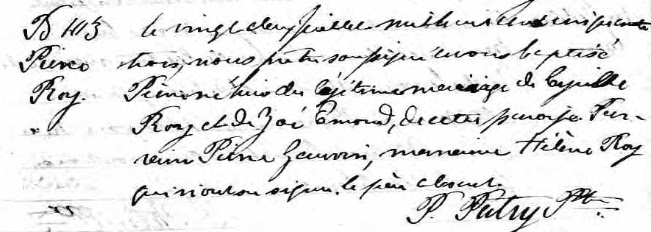 B 103 Le vingt deux juillet mil huit cent cinquante
Pierre trois, nous prêtre soussigné avons baptisé
Roy. Pierre né hier du légitime mariage de
Roy et de Zoé Emond, de cette paroisse. Par-
rain Pierre Gauvin, marraine Hélène Roy
qui n'ont su signer. le père absent.
P. Patry Ptre